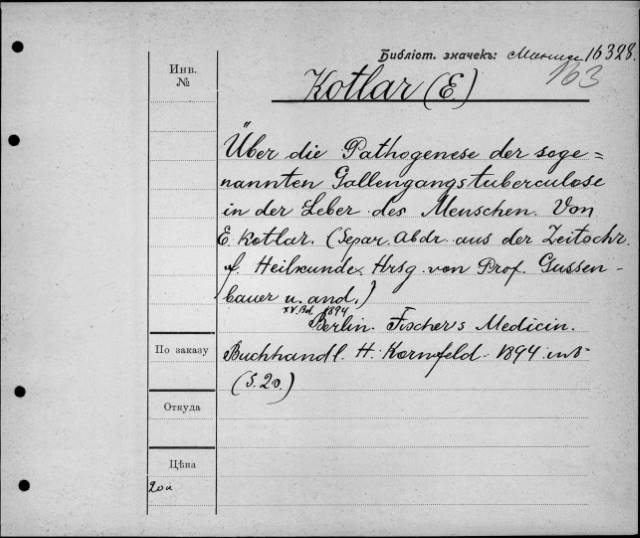 Библіот. значекъ: 16328.
163
Инв.
№
Kotlar (E.)
Über die Pathogenese der soge=
nannten Gallengangstuberculose
in der Leber des Menschen. Von
E. Kotlar. (Separ. Abdr. aus der Zeitschr.
f. Heilkunde. Hrsg. von Prof. Gussen-
bauer u. and.)
XV. Bd. 1894
Berlin. Fischer's Medicin.
По заказу
Buchhandl. H. Kornfeld. 1894. in 8°
(S. 20.)
Откуда
Цѣна